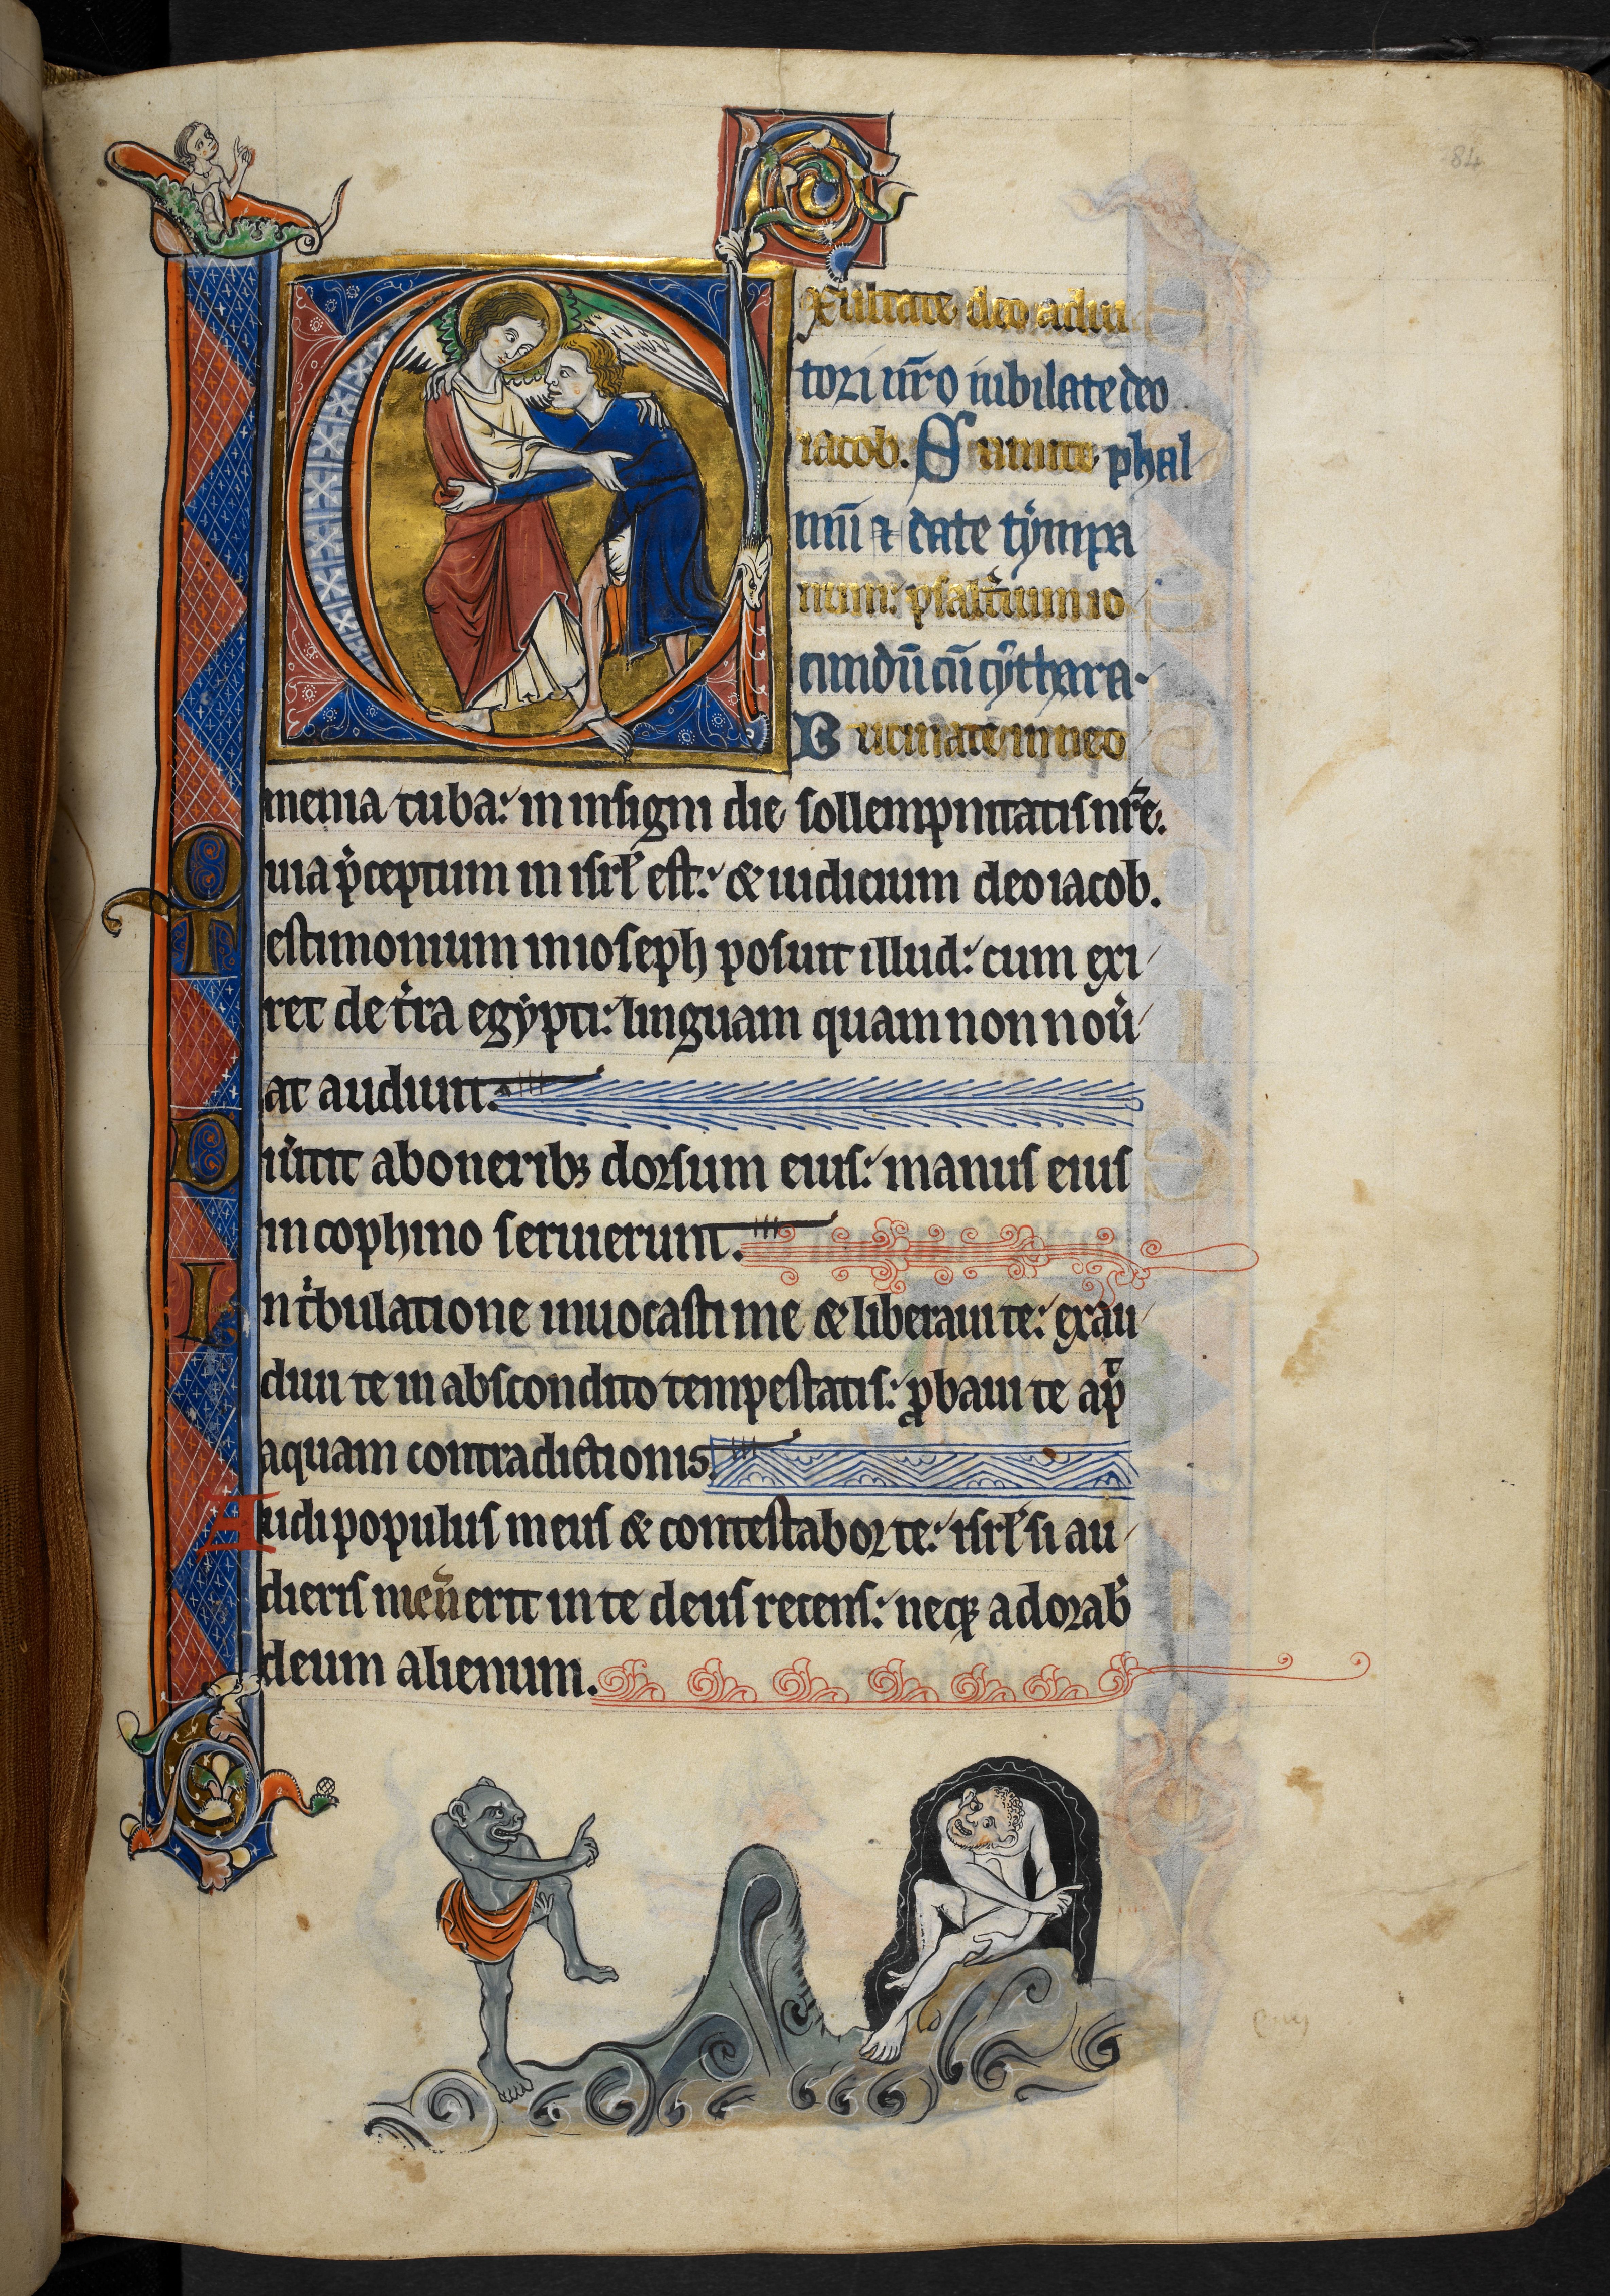 84
Exultate deo adiu
tori nr̃o iubilate deo
iacob. Sumite phal
mũ ⁊ date tẏmpa
num: psaltiũm io
cundũ cũ cẏthara.
Bucinate in neo
menia tuba: in insigni die sollempnitatis nr̃e.
Quia p̾ceptum in isrl̃ est: & iudicium deo iacob.
Testimonium in ioseph posuit illud: cum exi
ret de t̾ra egẏpti: linguam quam non nou̾
at audiuit.
Diu̾tit ab onerib; dorsum eius: manus eius
in cophino seruierunt.
In t̾bulatione inuocasti me & liberaui te: exau
diui te in abscondito tempestatis: ꝓbaui te ap̃
aquam contradictionis.
Audi populus meus & contestabor te: isrl̃ si au
dieris me ñ erit in te deus recens: neq; adorab̾
deum alienum.